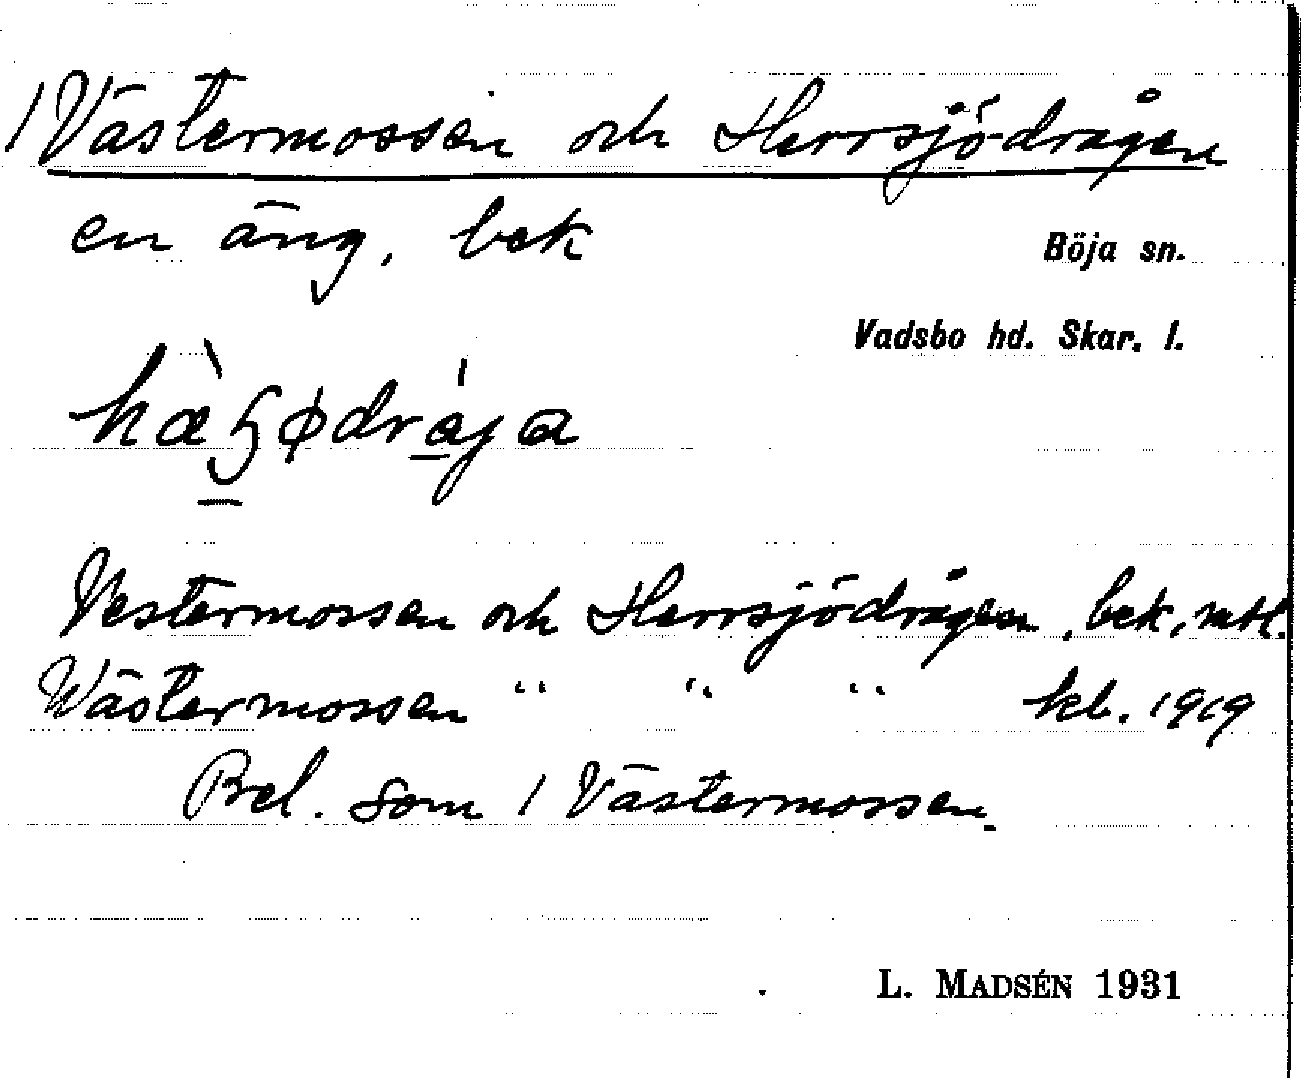 1 Västermossen och Herrsjö-drågen
en äng, bek
Böja sn.
Vadsbo hd. Skar. l.
Vestermossen och Herrsjödrågen, bek, mtl.
Wästermossen " " " kb. 1919
Bel. som 1 Västermossen.
L. MADSÉN 1931